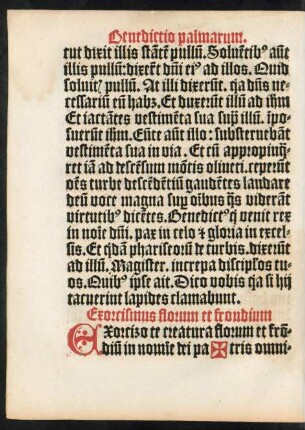 Benedictio palmarum.
tut dixit illis stãtẽ pullũ. Soluẽtibꝰ aũt
illis pullũ: dixerũt dñi eiꝰ ad illos. Quid
soluitꝭ pullũ. At illi dixerũt. qa dñs ne-
cessariũ eũ habꝫ. Et duxerũt illũ ad ihm
Et iactãtes vestimẽta sua sup̃ illũ. ĩpo-
suerũt ihm. Eũte aũt illo: substernebãt
vestimẽta sua in via. Et cũ appropinq̃-
ret iã ad descẽsum mõtis oliueti. ceperũt
oẽs turbe descẽdẽtiũ gaudẽtes laudare
deũ voce magna sup̃ oĩbus q̃s viderãt
virtutibꝰ dicẽtes. Benedictꝰ q̇ venit rex
in noĩe dñi. pax in celo ⁊ gloria in excel-
sis. Et q̇dã phariseorũ de turbis. dixerũt
ad illũ. Magister. increpa discipl'os tu-
os. Quibꝰ ip̃se ait. Dico vobis qa si hij
tacuerint lapides clamabunt.
Exorcismus florum et frondium
Exorcizo te creatura florum et frõ-
diũ in nomĩe dei pa ✠ tris omni-